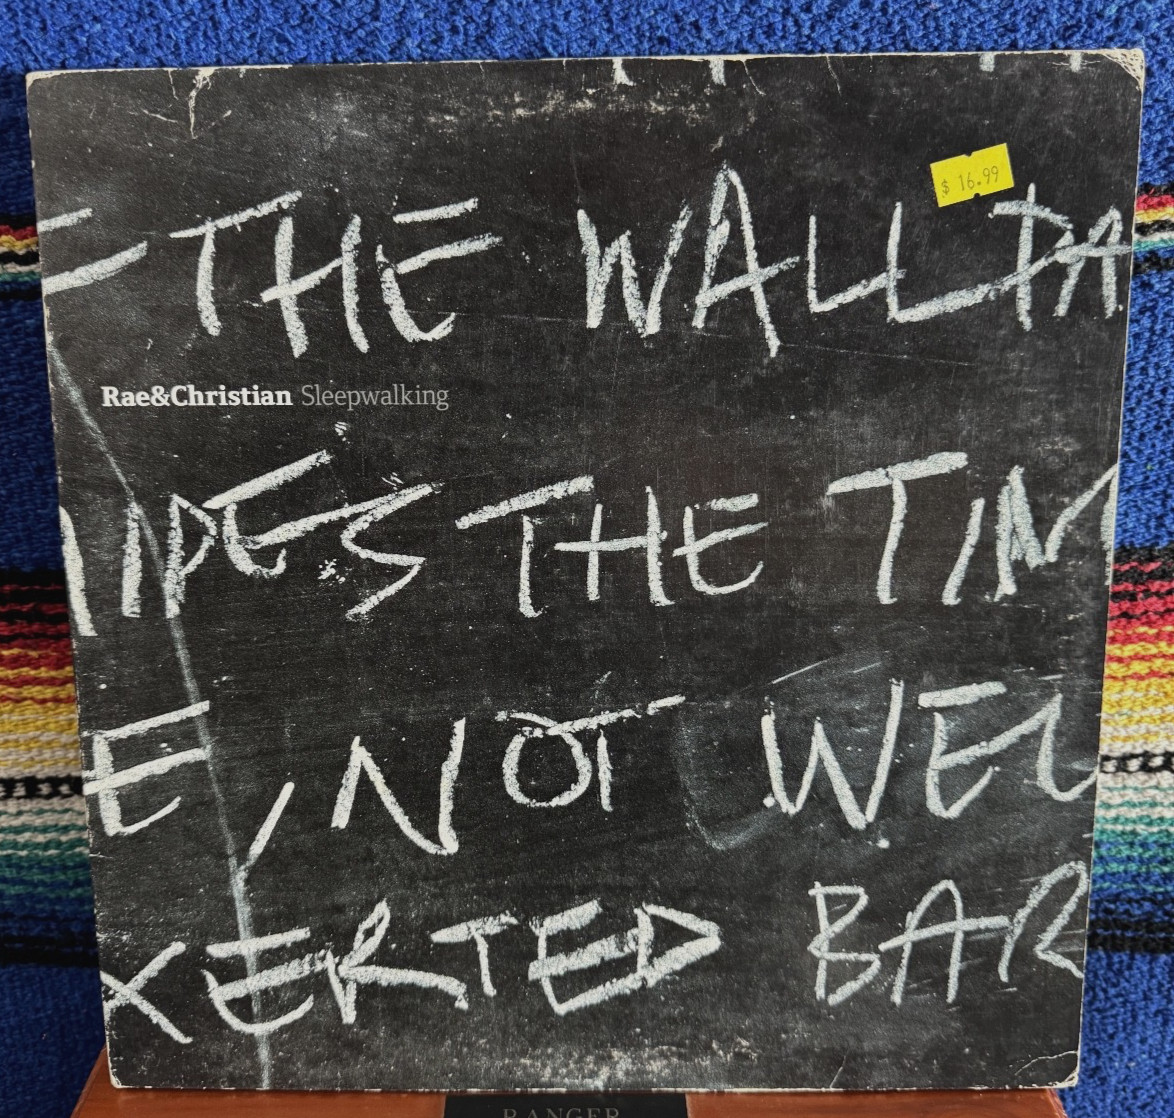 $ 16.99
E THE WALLPA
Rae&Christian Sleepwalking
IPES THE TIM
E, NOT WEL
XERTED BAR
RANGER